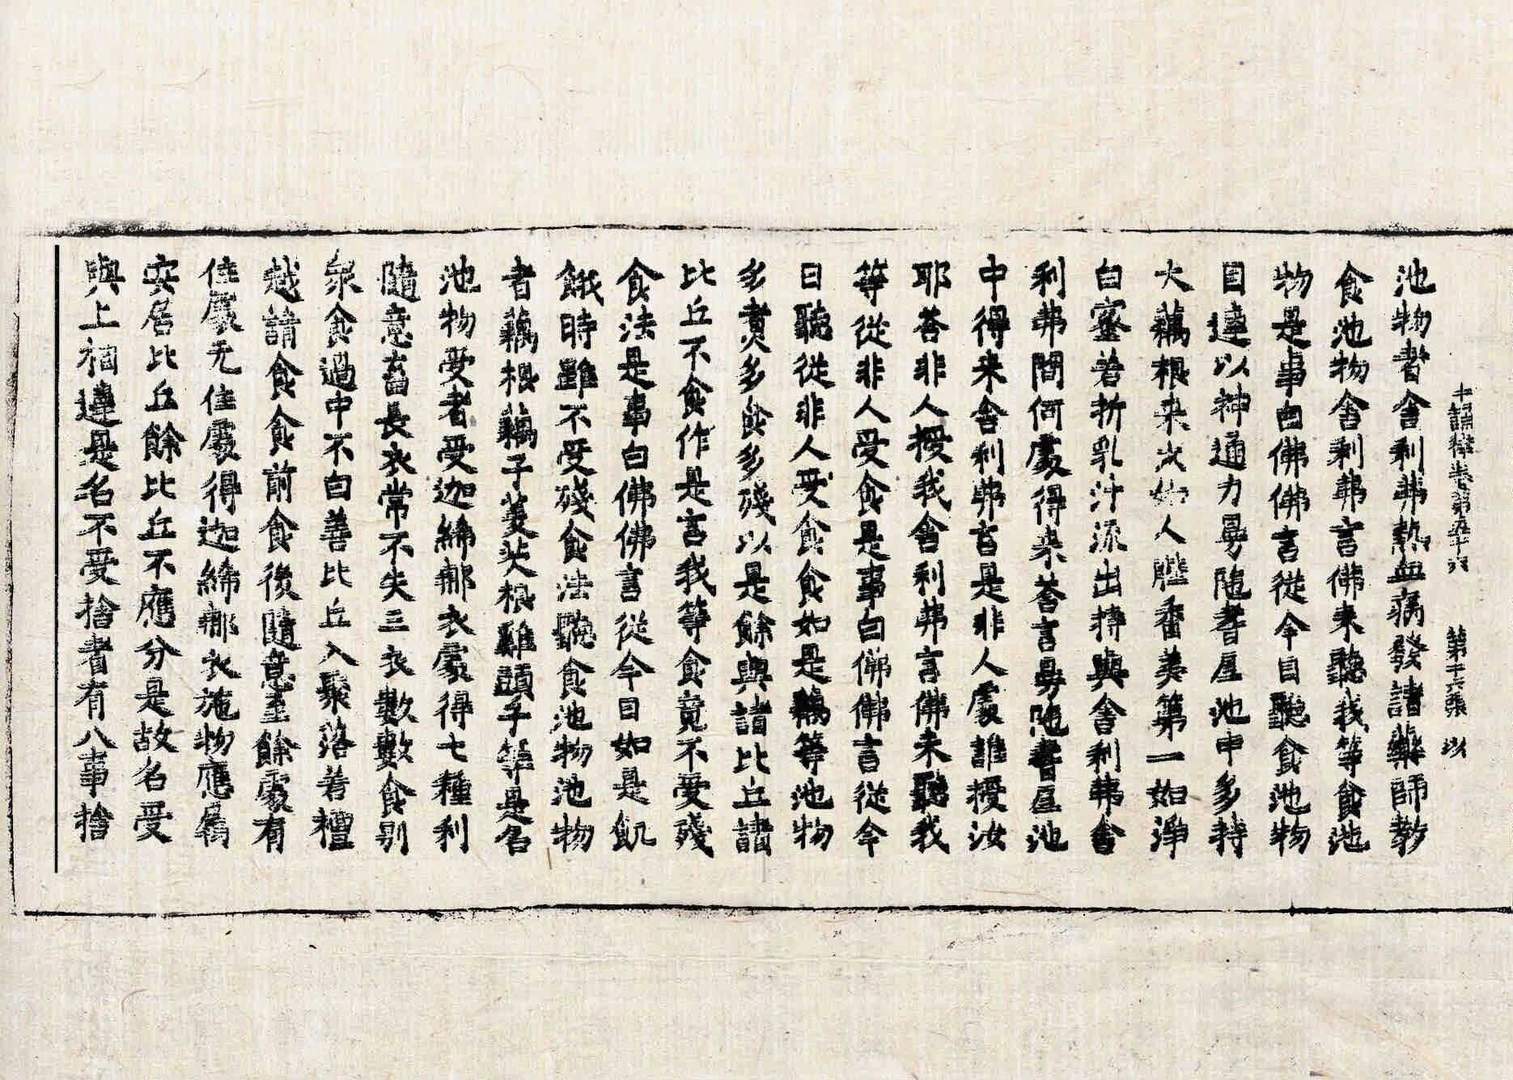 十誦律卷第五十六　第十六張　以
池物者舍利弗熱血病發諸藥師教
食池物舍利弗言佛未聽我等食池
物是事白佛佛言從今日聽食池物
目連以神通力㝵随耆尼池中多持
大藕根来大如人䏶香美第一如淨
白蜜若折乳汁流出持與舍利弗舍
利弗問何處得来荅言㝵随耆尼池
中得来舍利弗言是非人處誰授汝
耶荅非人授我舍利弗言佛未聽我
等從非人受食是事白佛佛言從今
日聽從非人受食食如是藕等池物
多煑多食多殘以是餘與諸比丘諸
比丘不食作是言我等食竟不受殘
食法是事白佛佛言從今日如是飢
餓時雖不受殘食法聽食池物池物
者藕根藕子菱芡根雞頭子等是名
池物受者受迦絺那衣處得七種利
隨意畜長衣常不失三衣數數食別
衆食過中不白善比丘入聚落若檀
越請食食前食後隨意至餘處有
住處无住處得迦絺那衣施物應屬
安居比丘餘比丘不應分是故名受
與上相違是名不受捨者有八事捨